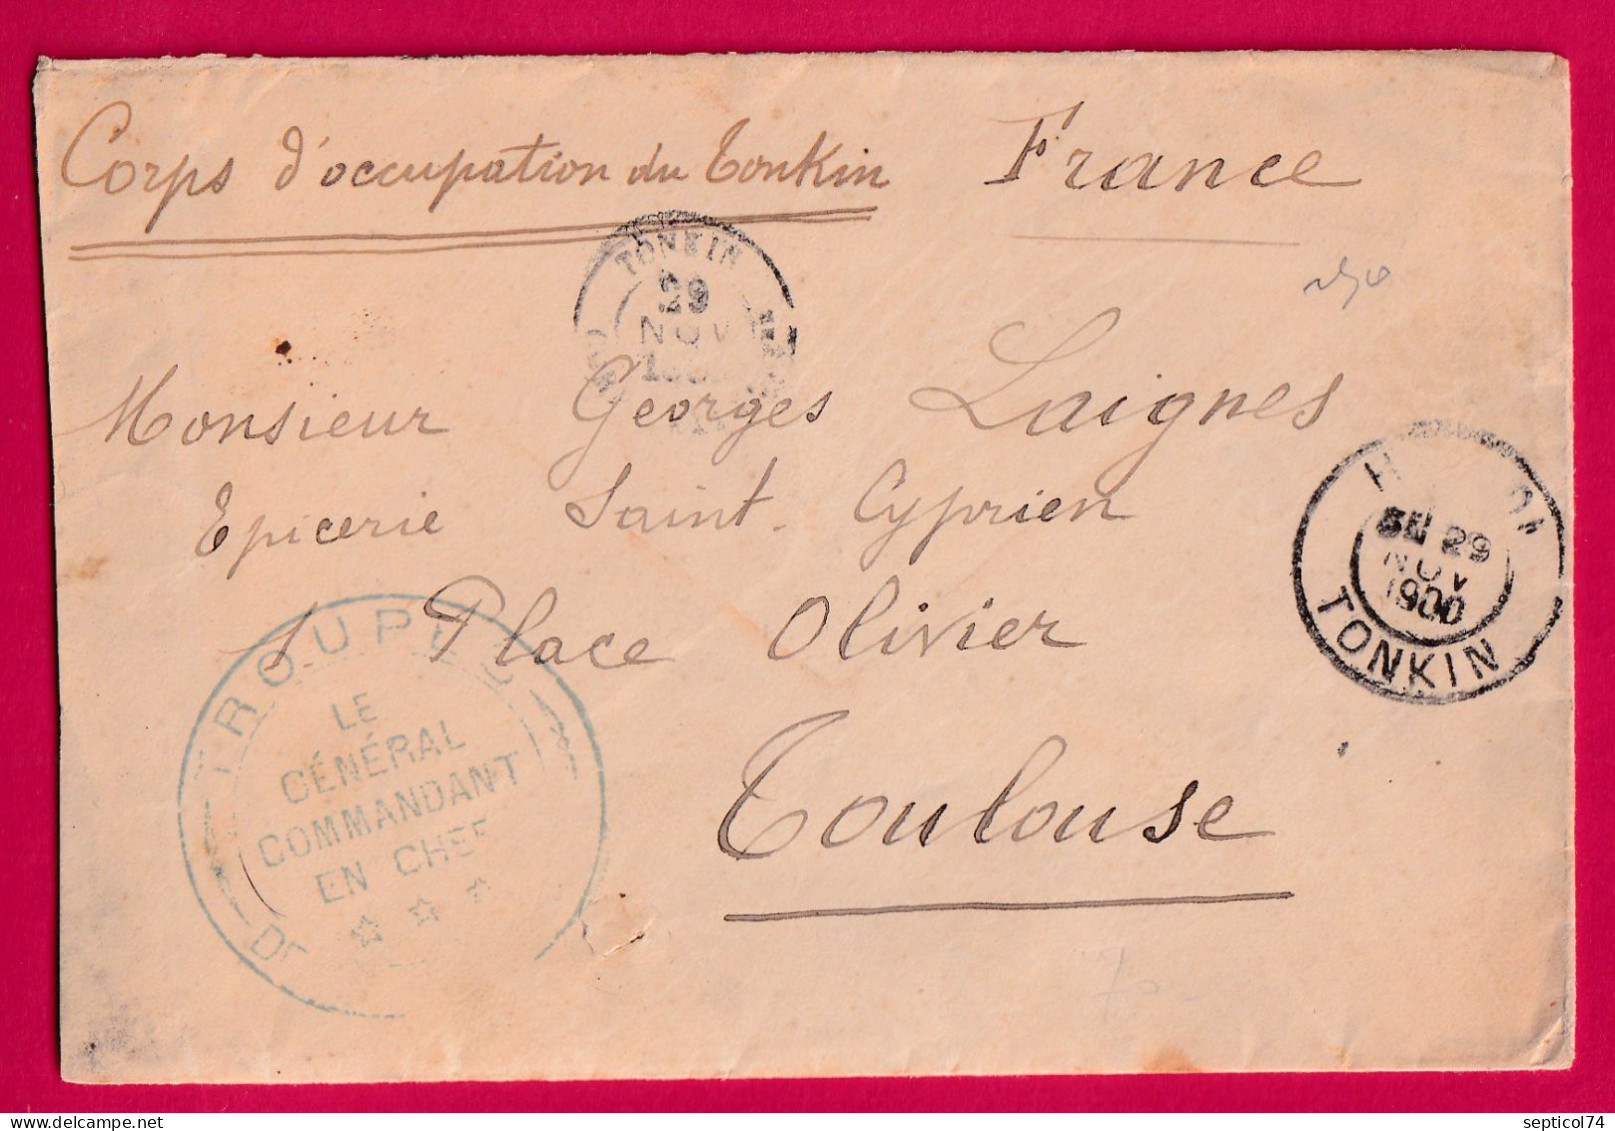 Corps d'occupation du Tonkin France
TONKIN
29
NOV
Monsieur Georges Laignes
Epicerie Saint-Cyprien
1 Place Olivier
Toulouse
5E 29
NOV
1900
TONKIN
TROUPES
LE
GÉNÉRAL
COMMANDANT
EN CHEF
septicol74